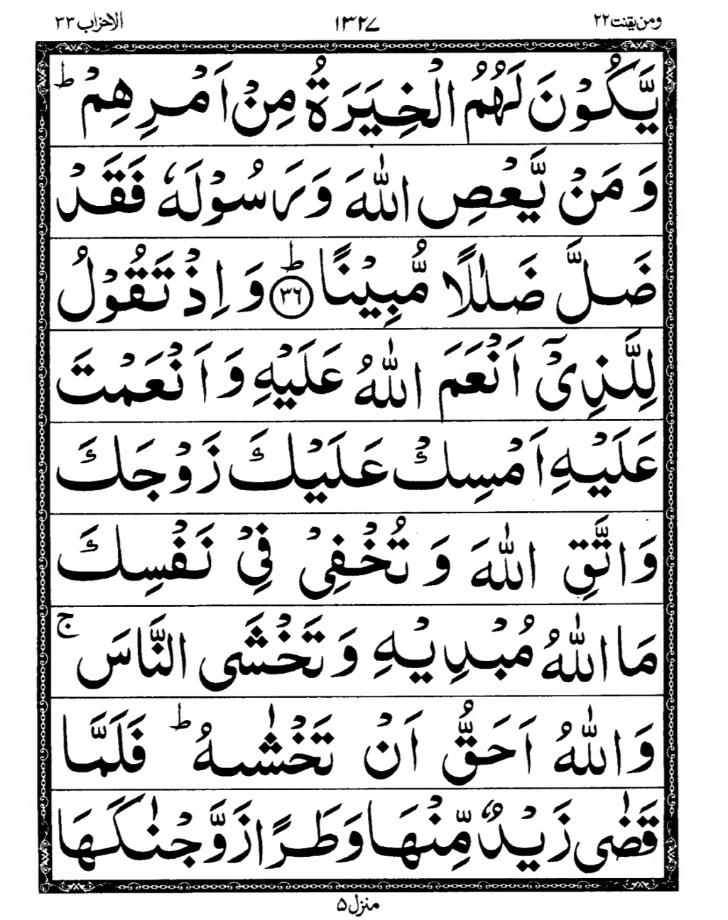 ومن یقنت ۲۲ ۱۳۲۷ الاحزاب ۳۳
يَّكُوْنَ لَهُمُ الْخِيَرَةُ مِنْ اَمْرِهِمْ ؕ
وَ مَنْ يَّعْصِ اللّٰهَ وَ رَسُوْلَهٗ فَقَدْ
ضَلَّ ضَلٰلًا مُّبِيْنًا ؕ‏ ﴿۳۶﴾ وَ اِذْ تَقُوْلُ
لِلَّذِىْۤ اَنْعَمَ اللّٰهُ عَلَيْهِ وَ اَنْعَمْتَ
عَلَيْهِ اَمْسِكْ عَلَيْكَ زَوْجَكَ
وَ اتَّقِ اللّٰهَ وَ تُخْفِىْ فِىْ نَفْسِكَ
مَا اللّٰهُ مُبْدِيْهِ وَ تَخْشَى النَّاسَ ۚ
وَ اللّٰهُ اَحَقُّ اَنْ تَخْشٰىهُ ؕ فَلَمَّا
قَضٰى زَيْدٌ مِّنْهَا وَطَرًا زَوَّجْنٰكَهَا
منزل ۵